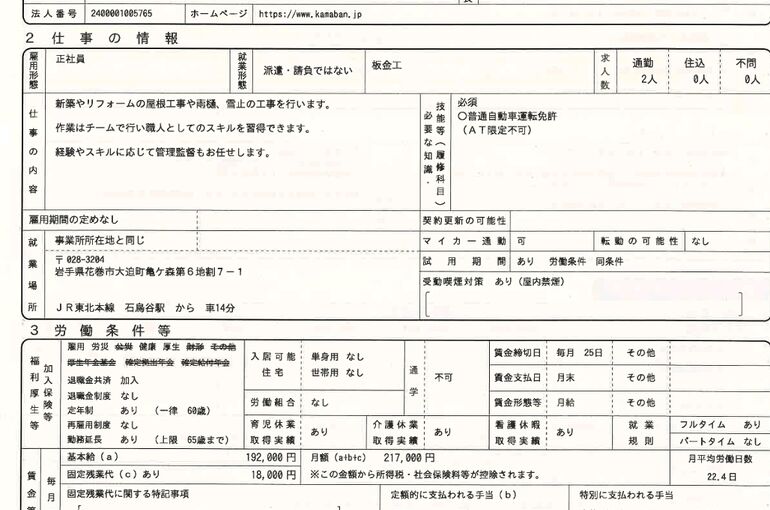 法人番号 2400001005765 ホームページ https://www.kamaban.jp
2 仕事の情報
雇用形態 正社員 就業形態 派遣・請負ではない 板金工 求人数 通勤 2人 住込 0人 不問 0人
仕事の内容
新築やリフォームの屋根工事や雨樋、雪止の工事を行います。
作業はチームで行い職人としてのスキルを習得できます。
経験やスキルに応じて管理監督もお任せします。
必要な知識・技能等(履修科目)
必須
○普通自動車運転免許
(AT限定不可)
雇用期間の定めなし 契約更新の可能性
就業場所 事業所所在地と同じ
〒028-3204
岩手県花巻市大迫町亀ケ森第6地割7-1
JR東北本線 石鳥谷駅 から 車14分
マイカー通勤 可 転勤の可能性 なし
試用期間 あり 労働条件 同条件
受動喫煙対策 あり(屋内禁煙)
3 労働条件等
福利厚生等 加入保険等
雇用 労災 公災 健康 厚生 財形 その他
厚生年金基金 確定拠出年金 確定給付年金
退職金共済 加入
退職金制度 なし
定年制 あり (一律 60歳)
再雇用制度 なし
勤務延長 あり (上限 65歳まで)
入居可能住宅 単身用 なし
世帯用 なし
労働組合 なし
通学 不可
育児休業取得実績 あり 介護休業取得実績 あり 看護休暇取得実績 あり
賃金締切日 毎月 25日 その他
賃金支払日 月末 その他
賃金形態等 月給 その他
就業規則 フルタイム あり
パートタイム なし
賃金等 毎月
基本給(a) 192,000円 月額(a+b+c) 217,000円
固定残業代(c)あり 18,000円 ※この金額から所得税・社会保険料等が控除されます。
月平均労働日数
22.4日
固定残業代に関する特記事項 定額的に支払われる手当(b) 特別に支払われる手当